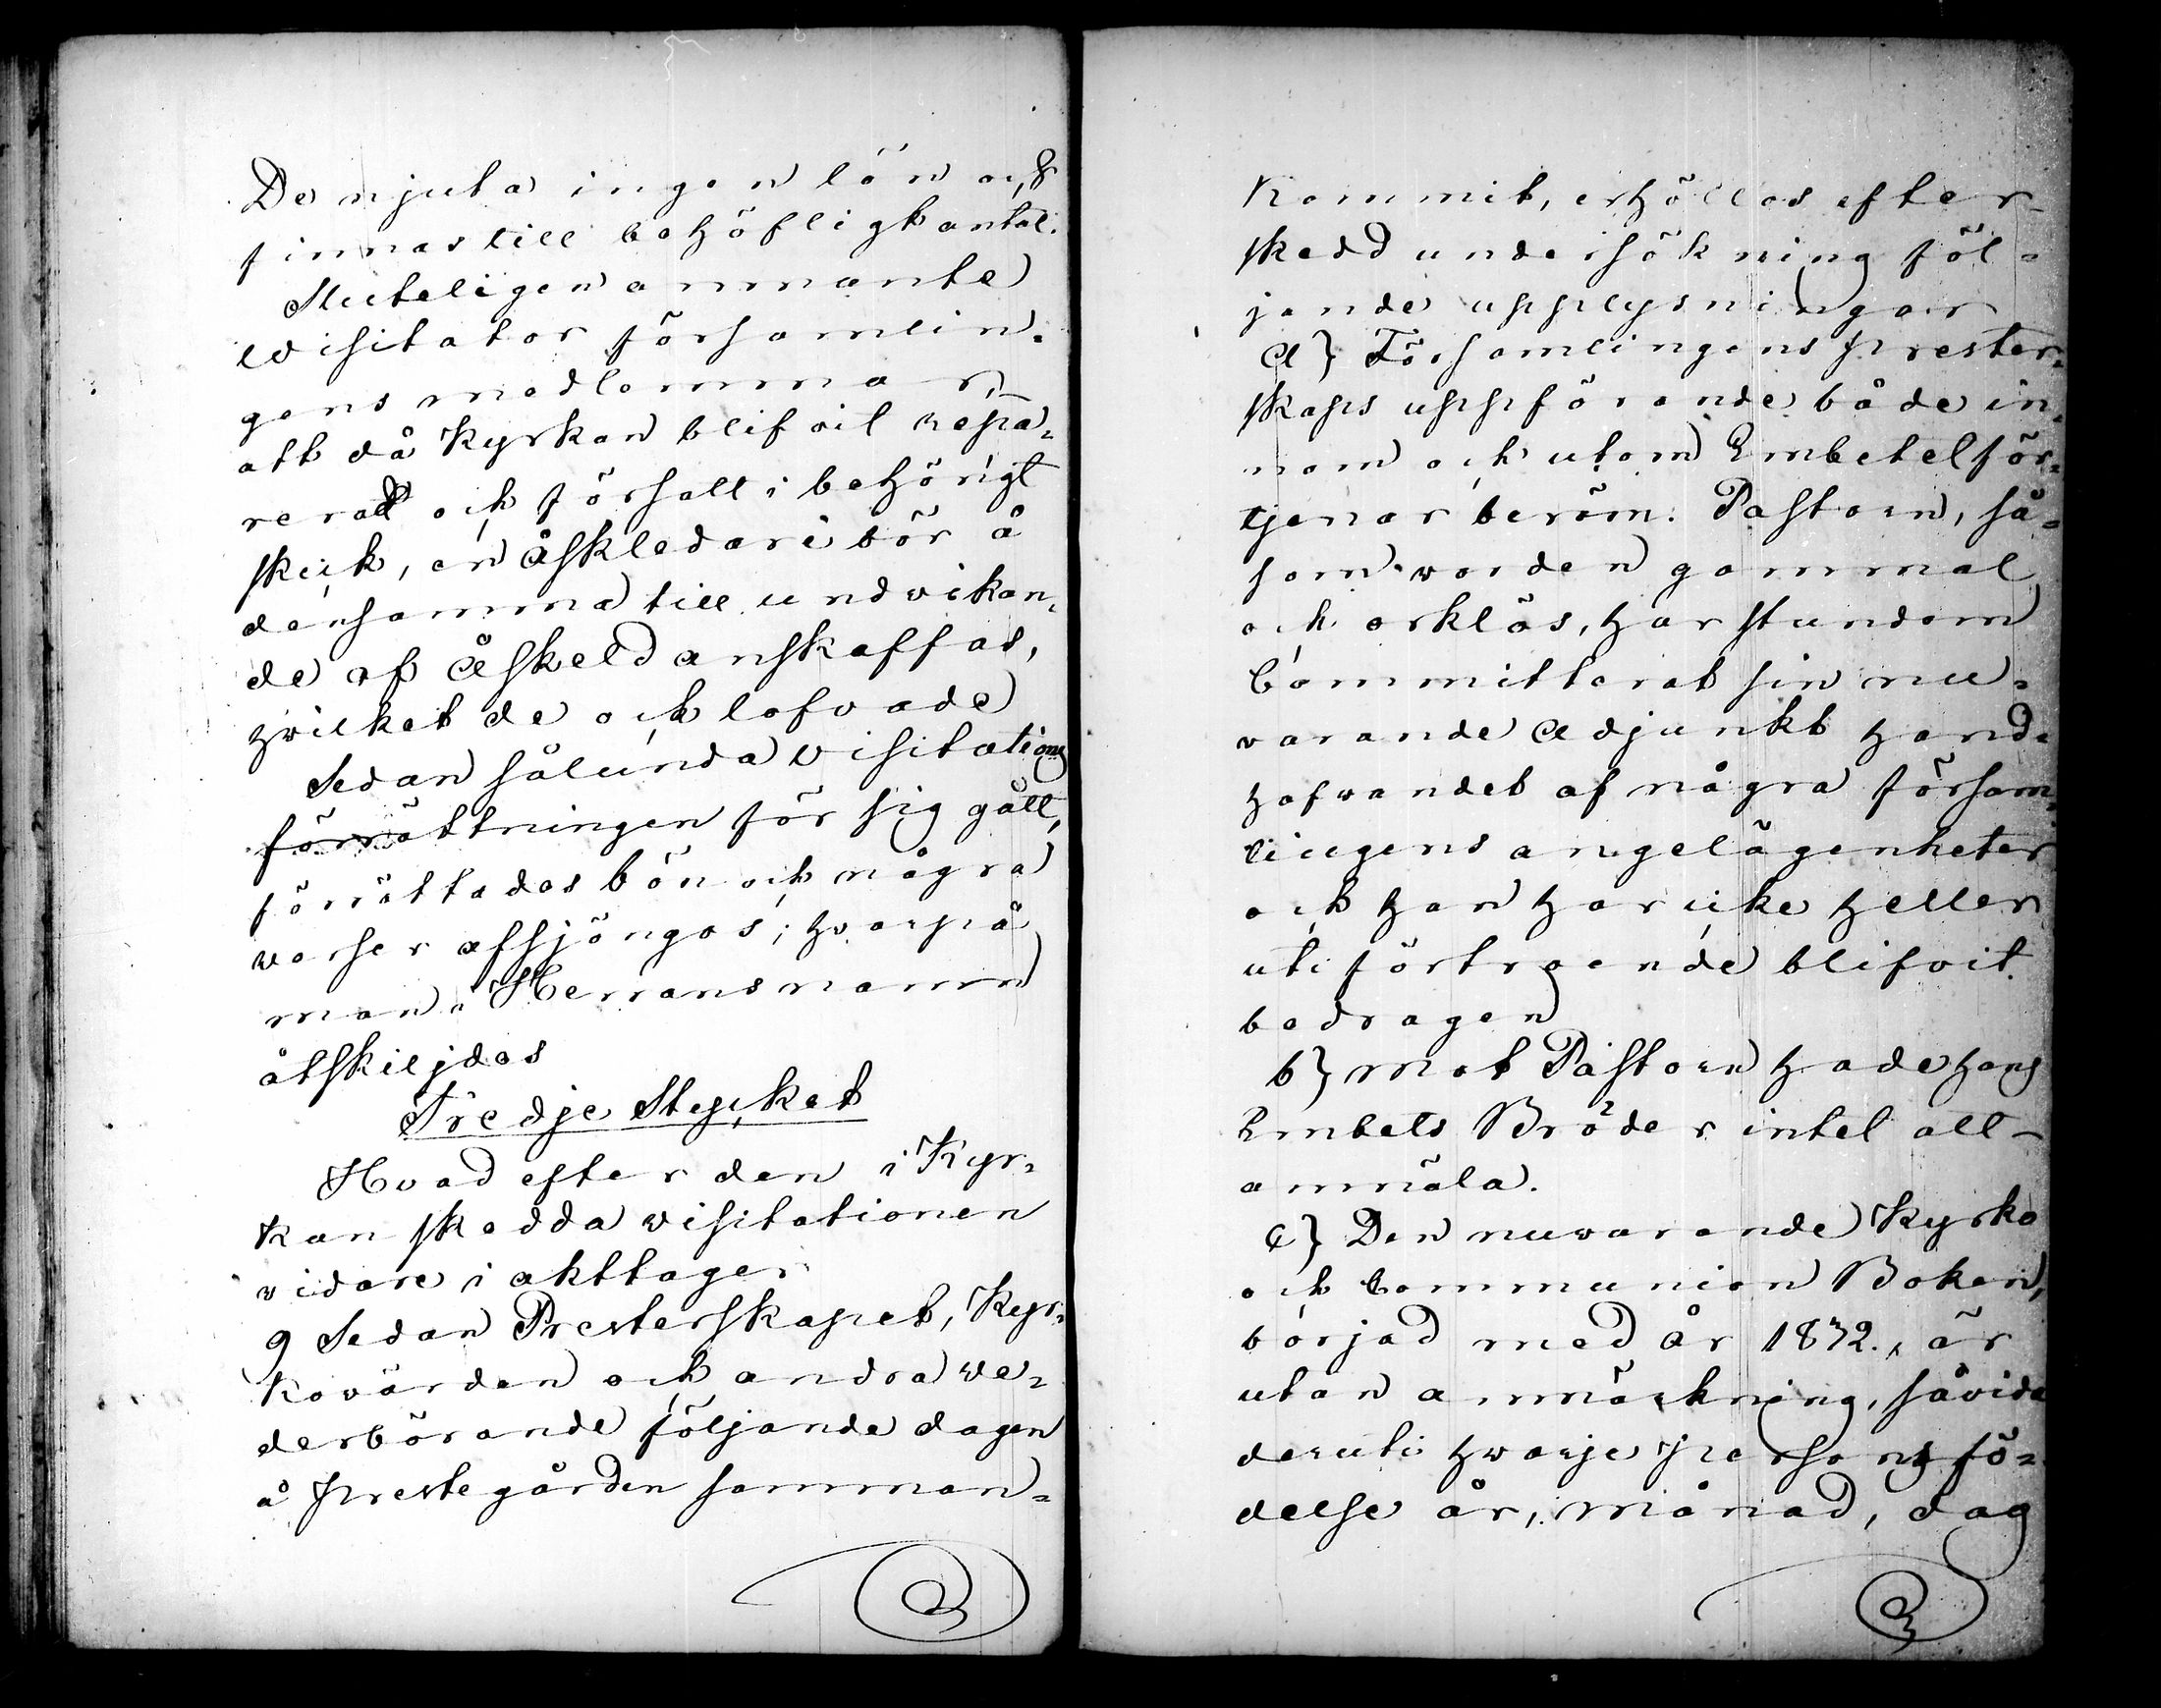 De njuta ingen lön och
finnas till behöfligt antal.
Sluteligen anmante
Visitator församlin-
gens medlemmar,
att då Kyrkan blifvit repa-
rerad och försatt i behörigt
skick, en åskledare bör å
densamma till undvikan-
de af Åskeld anskaffas,
hvilket de ock lofvade
Sedan sålunda visitations
förrättningen för sig gått,
förrättades bön och några
verser afsjöngos; hvarpå
man i Herrans namn
åtskiljdes
Tredje Stycket
Hvad efter den i Kyr-
kan skedda visitationen
vidare i akttages
9 Sedan Presterskapet, Kyr-
kovärden och andra ve-
derbörande följande dagen
å prestegården samman-
kommit, erhöllos efter
skedd undersökning föl-
jande upplysningar
a} Församlingens prester-
skaps uppförande både in-
nom och utom Embetet för-
tjenar beröm. Pastorn, så-
som vorden gammal
och orklös, har stundom
committerat sin nu-
varande Adjunkt hand-
hafvandet af några försam-
lingens angelägenheter
och han har icke heller
uti förtroende blifvit
bedragen
b} Mot Pastorn hade hans
Embets Bröder intet att
anmäla.
c} Den nuvarande Kyrko
och Communion Boken,
börjad med år 1872., är
utan anmärkning, såvida
deruti hvarje persons fö-
delse år, månad, dag